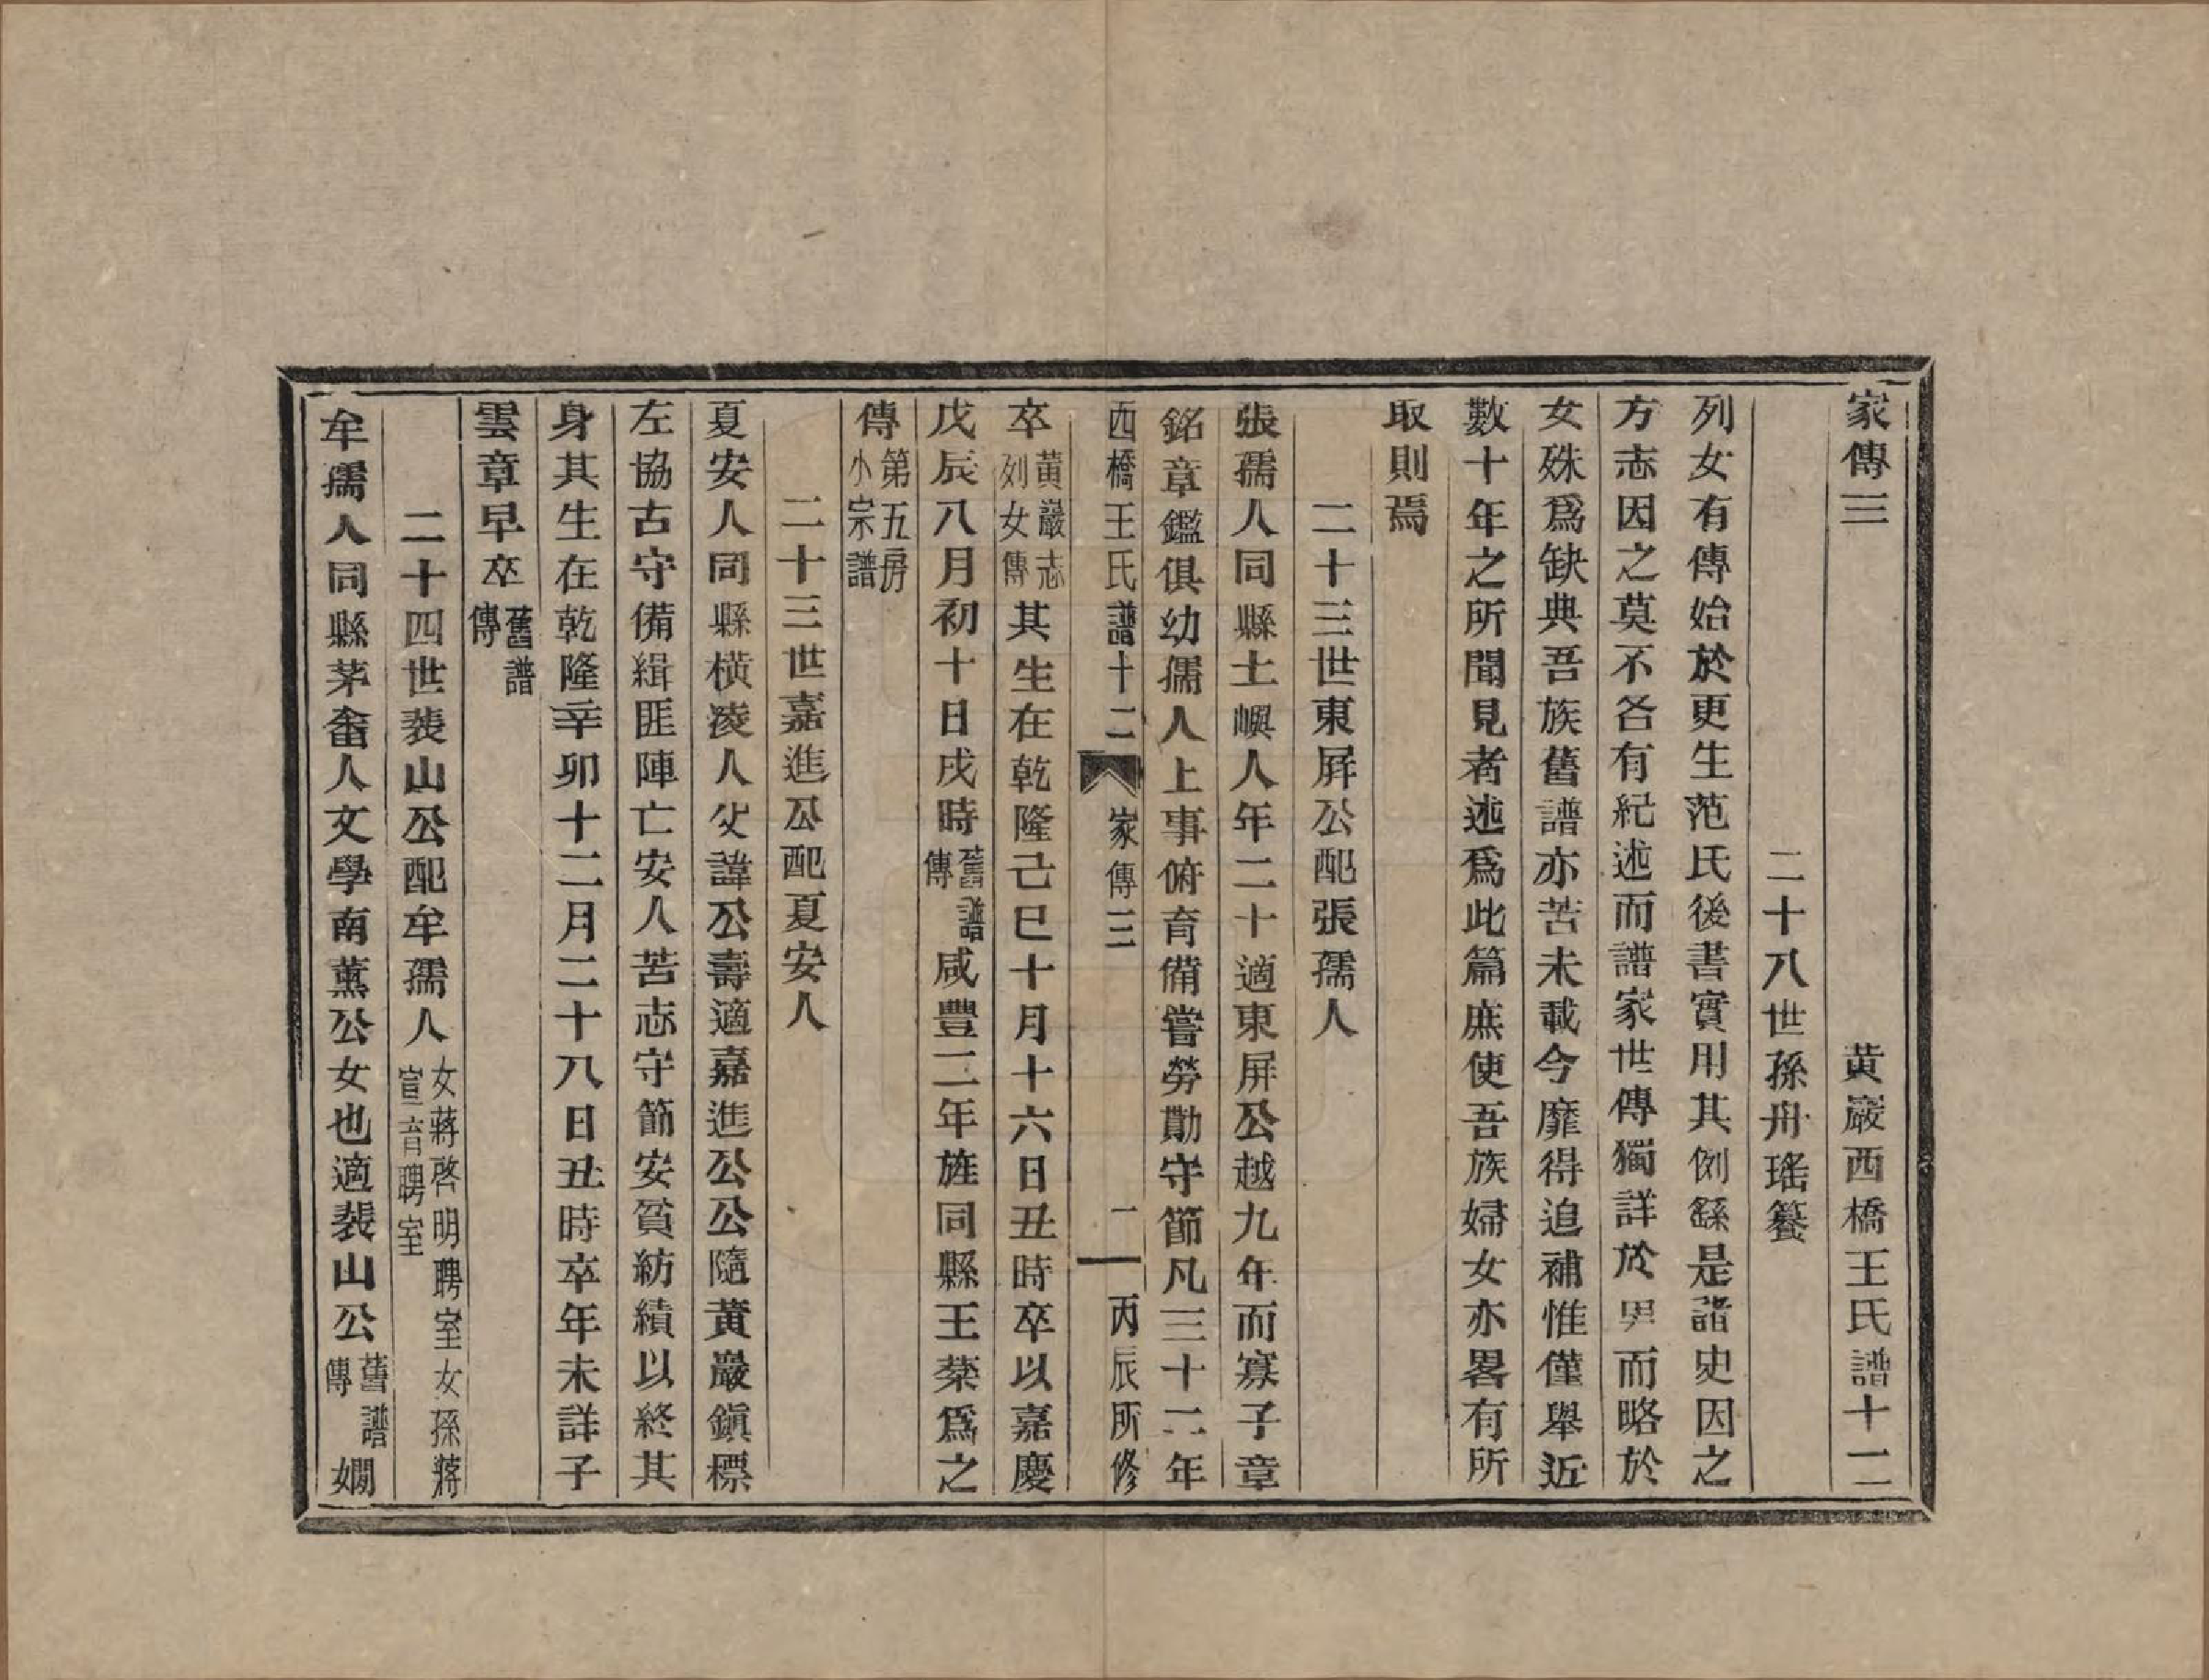 家傳三　黄巖西橋王氏譜十二
二十八世孫舟瑤纂
列女有傳始於更生范氏後書實用其例繇是諸史因之
方志因之莫不各有紀述而譜家世傳獨詳於男而略於
女殊爲缺典吾族舊譜亦苦未載今靡得追補惟僅舉近
數十年之所聞見者述爲此篇庶使吾族婦女亦畧有所
取則焉
二十三世東屏公配張孺人
張孺人同縣土嶼人年二十適東屏公越九年而寡子章
銘章鑑俱幼孺人上事俯育備嘗勞勩守節凡三十二年
西橋王氏譜十二　家傳三　一　丙辰所修
卒黄巖志列女傳其生在乾隆己巳十月十六日丑時卒以嘉慶
戊辰八月初十日戌時舊譜傳咸豐二年旌同縣王棻爲之
傳第五房小宗譜
二十三世嘉進公配夏安人
夏安人同縣橫凌人父諱公壽適嘉進公公隨黄巖鎭標
左協古守備緝匪陣亡安人苦志守節安貧紡績以終其
身其生在乾隆辛卯十二月二十八日丑時卒年未詳子
雲章早卒舊譜傳
二十四世裴山公配牟孺人女蔣啓明聘室女孫蔣宣音聘室
牟孺人同縣茅畬人文學南薫公女也適裴山公舊譜傳嫺